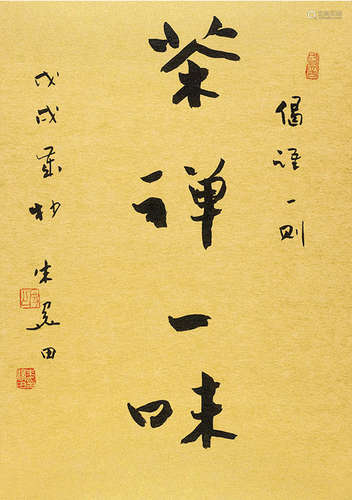 偈语一则
茶禅一味
戊戌岁杪 朱关田